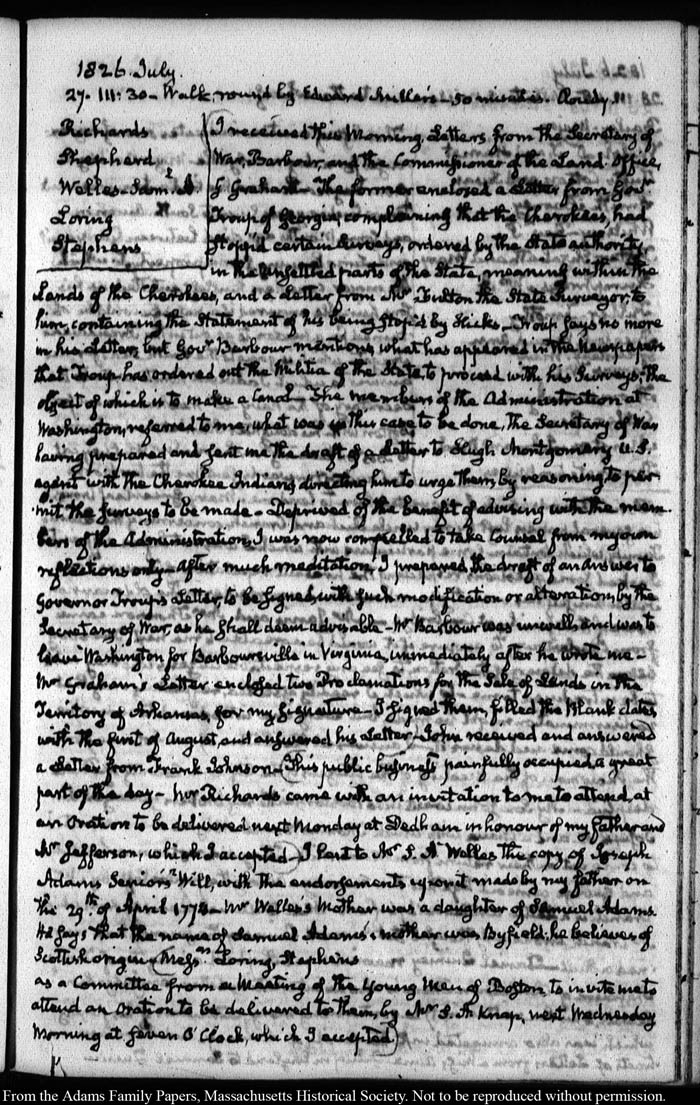 1826. July.
27. III:30. Walk round by Edward Miller's 50 minutes. Rowdy.
Richards
Shepherd
Welles. Saml. A.
Loring
Stephens
I received this Morning, Letters from the Secretary of
War, Barbour, and the Commissioner of the Land Office,
G. Graham. The former enclosed a Letter from Govr.
Troup of Georgia, complaining that the Cherokees, had
stopp'd certain surveys, ordered by the State authority,
in the unsettled parts of the State, meaning within the
Lands of the Cherokees, and a Letter from Mr. Fulton the State Surveyor, to
him, containing the Statement of his being stop'd by Hicks. Troup says no more
in his Letter, but Govr. Barbour mentions, what has appeared in the Newspapers
that Troup has ordered out the Militia of the State, to proceed with his Surveys; the
object of which is to make a Canal. The members of the Administration at
Washington, referred to me, what was in this case to be done, the Secretary of War
having prepared and sent me the draft of a Letter to Hugh Montgomery U.S.
agent with the Cherokee Indians, directing him to urge them, by reasoning to per-
mit the surveys to be made. Deprived of the benefit of advising with the mem-
bers of the Administration, I was now compelled to take counsel from my own
reflections only. After much meditation, I prepared the draft of an answer to
Governor Troup's Letter, to be signed, with such modification or alterations, by the
Secretary of War, as he shall deem advisable. Mr Barbour was unwell, and was to
leave Washington for Barboursville in Virginia, immediately after he wrote me.
Mr Graham's Letter enclosed two Proclamations for the Sale of Lands in the
Territory of Arkansas, for my signature. I signed them, filled the blank dates
with the first of August, and answered his Letter. John received and answered
a Letter from Frank Johnson. This public business painfully occupied a great
part of the day. Mr Richards came with an invitation to me to attend, at
an Oration to be delivered next Monday at Dedham in honour of my father and
Mr Jefferson, which I accepted. I lent to Mr S. A Welles the copy of Joseph
Adams Senior's Will, with the endorsements upon it made by my father on
the 29th. of April 1774. Mr Welles's Mother was a daughter of Samuel Adams.
He says that the name of Samuel Adams's mother was Byfield; he believes of
Scottish origin. Messrs. Loring, Stephens
as a Committee from a Meeting of the Young Men of Boston to invite me to
attend an Oration to be delivered to them, by Mr S. L. Knap, next Wednesday
Morning at seven O'Clock, which I accepted.
From the Adams Family Papers, Massachusetts Historical Society. Not to be reproduced without permission.